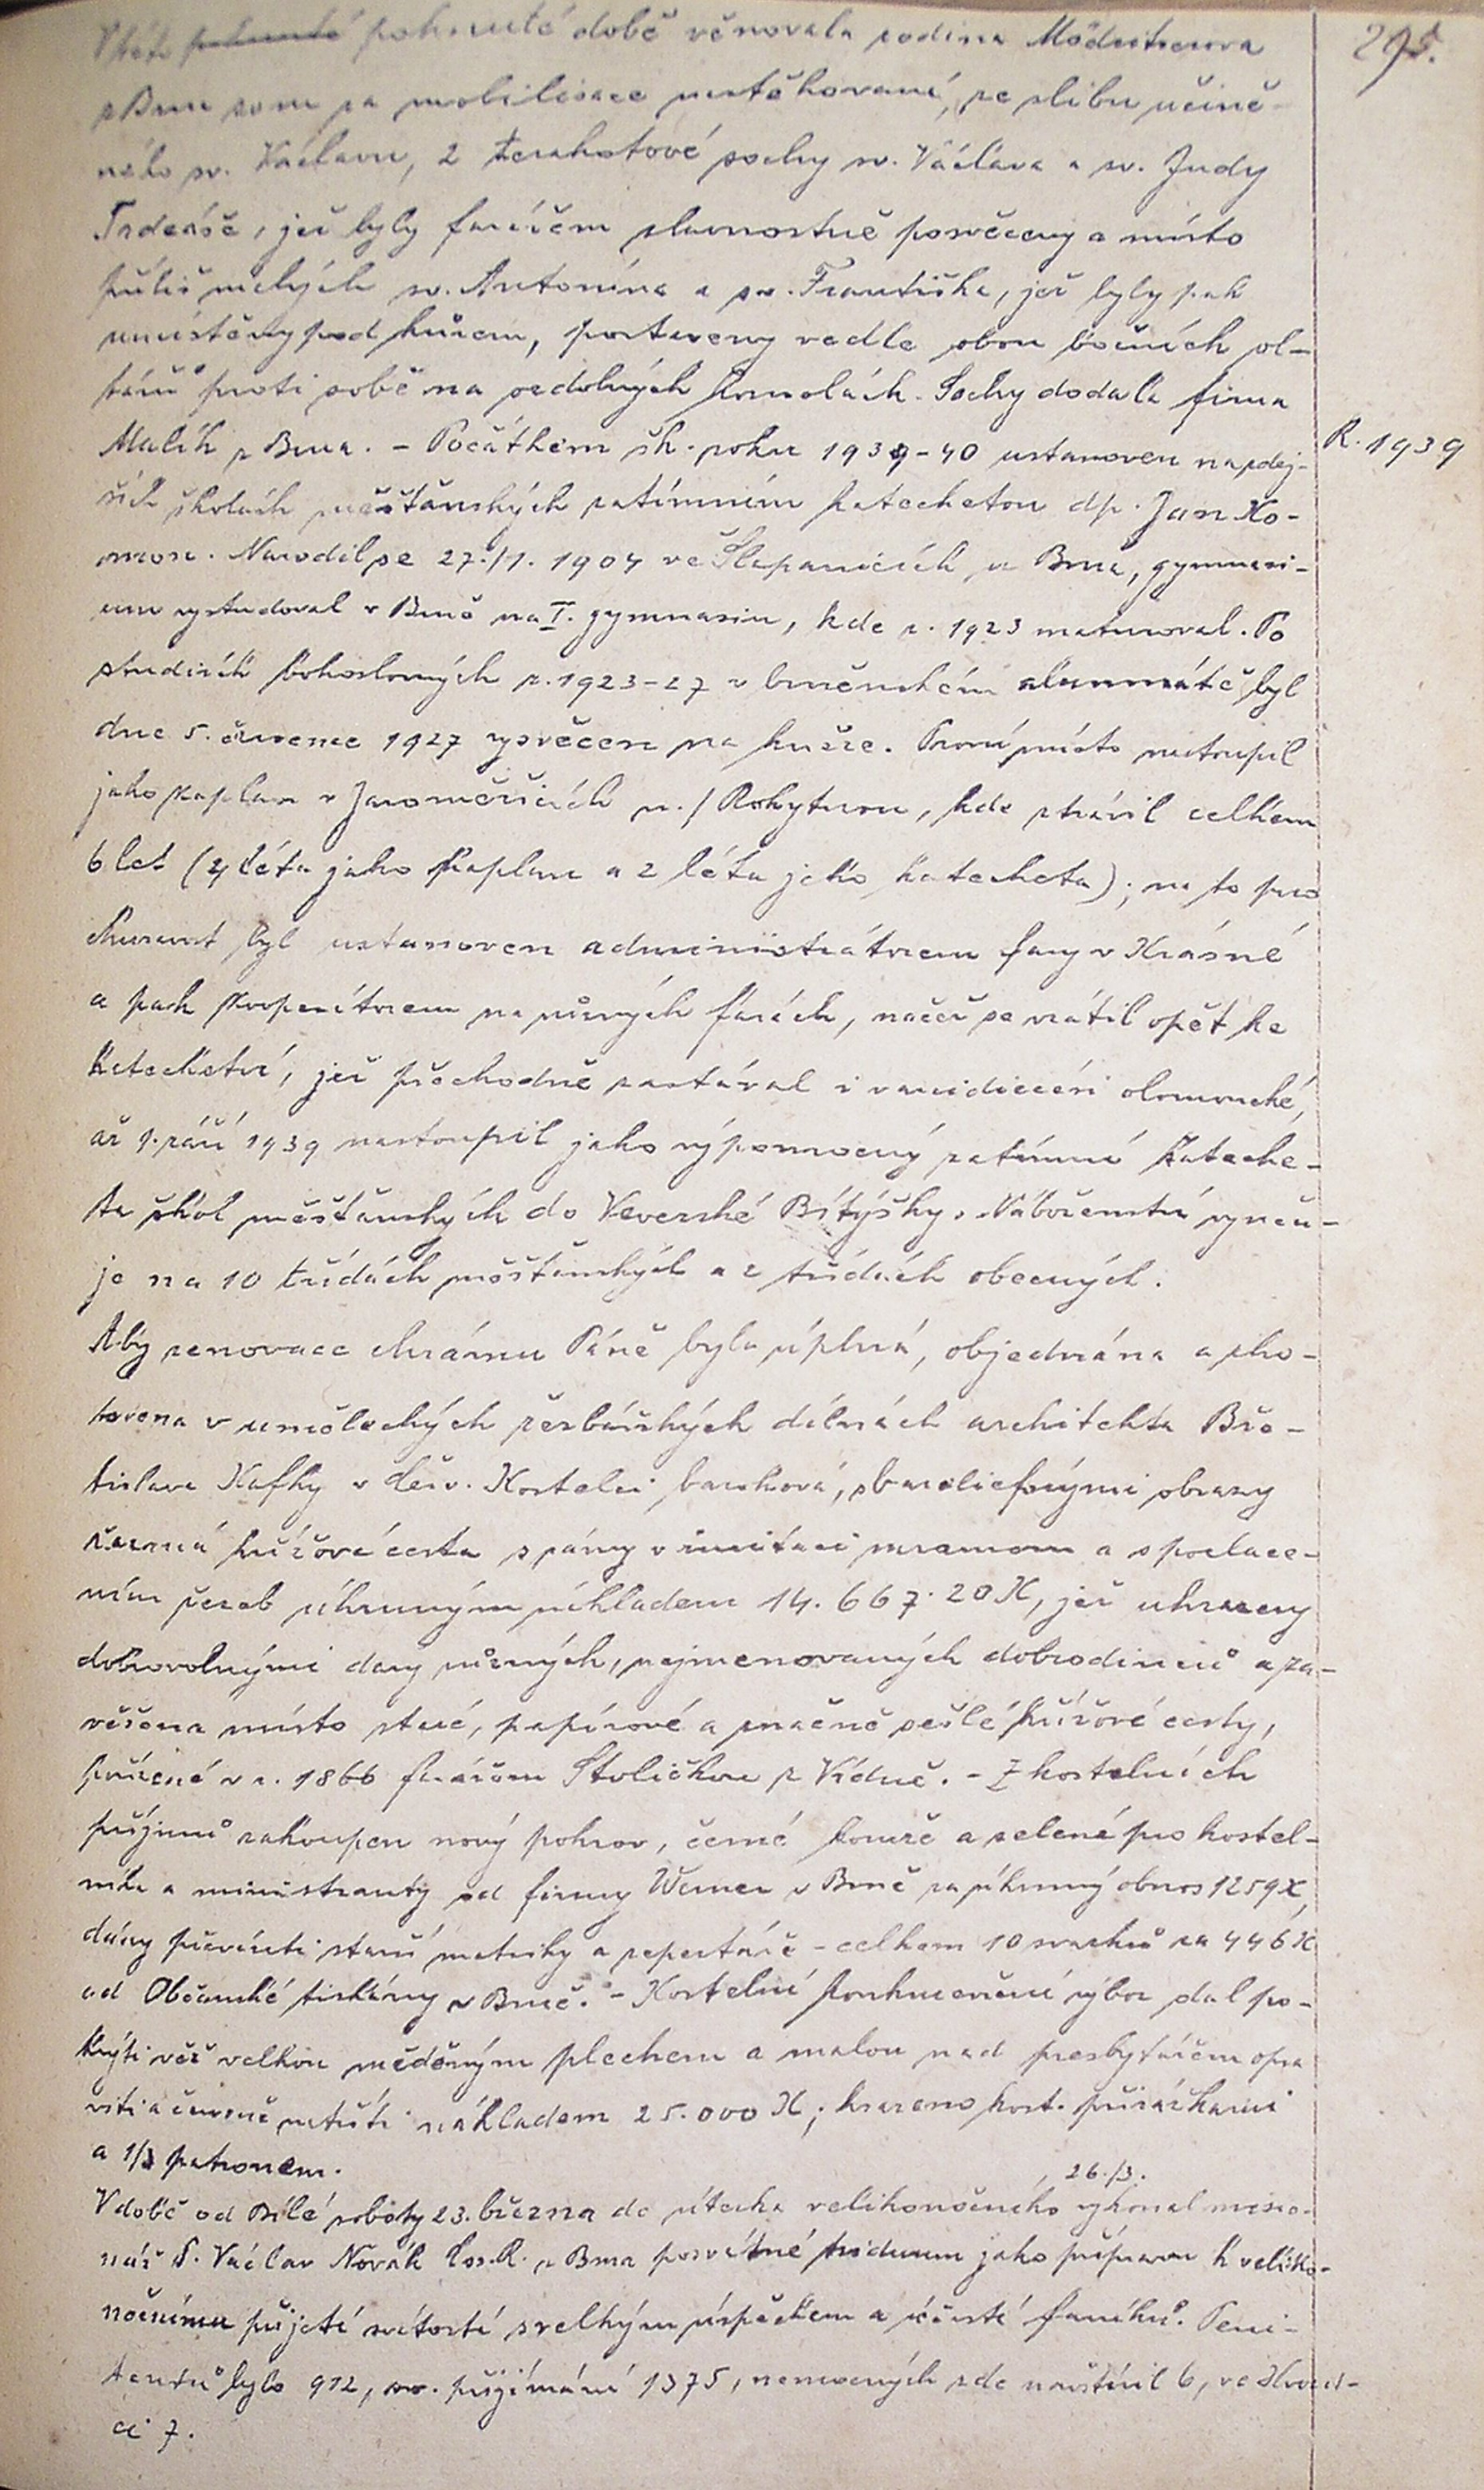 295.
V této pohnuté pohnuté době věnovala rodina
z Brna sem za mobilisace nastěhovaná, ze slibu učině-
ného sv. Václavu, 2 terakotové sochy sv. Václava a sv. Judy
Tadeáše, jež byly farářem slavnostně posvěceny a místo
příliš malých sv. Antonína a sv. Františka, jež byly pak
umístěny pod kůrem, postaveny vedle obou bočních ol-
tářů proti sobě na ozdobných konsolách. Sochy dodala firma
Malík z Brna. - Počátkem šk. roku 1939-40 ustanoven na zdej-
R. 1939
ších školách měšťanských zatímním katechetou dp. Jan Ko-
. Narodil se 27./1. 1904 ve Šlapanicích u Brna, gymnasi-
um vystudoval v Brně na I. gymnasiu, kde r. 1923 maturoval. Po
studiích bohoslovných r. 1923-27 v brněnském alumnátě byl
dne 5. července 1927 vysvěcen na kněze. První místo nastoupil
jako kaplan v Jaroměřicích n./Rokytnou, kde ztrávil celkem
6 let (4 léta jako kaplan a 2 léta jako katecheta); na to pro
churavost byl ustanoven administrátorem fary v Krásné
a pak kooperátorem na různých farách, načež se vrátil opět ke
katechetství, jež přechodně zastával i v arcidiecési olomoucké,
až 1. září 1939 nastoupil jako výpomocný zatímní kateche-
ta škol měšťanských do Veverské Bítýšky. Náboženství vyuču-
je na 10 třídách měšťanských a 2 třídách obecných.
Aby renovace chrámu Páně byla úplná, objednána a zho-
tovena v uměleckých řezbářských dílnách architekta Bře-
tislava Kafky v Červ. Kostelci baroková, s basreliefovými obrazy
řezaná křížová cesta s rámy v imitaci mramoru a s pozlace-
ním řezeb úhrnným nákladem 14.667.20 K, jež uhrazeny
dobrovolnými dary různých, nejmenovaných dobrodinců a za-
věšena místo staré, papírové a značně sešlé křížové cesty,
pořízené v r. 1866 farářem Stoličkou z Vídně. - Z kostelních
příjmů zakoupen nový pohrov, černé komže a zelené pro kostel-
níka a ministranty od firmy Werner v Brně za úhrnný obnos 1259 K,
dány převázati starší matriky a repertáře - celkem 10 svazků za 446 K
od Občanské tiskárny v Brně. - Kostelní konkurenční výbor dal po-
krýti věž velkou měděným plechem a malou nad presbytářem opra
viti a červeně natříti nákladem 25.000 K; hrazeno kost. přirážkami
a 1/3 patronem.
V době od Bílé soboty 23. března do úterka velikonočního 26./3. vykonal misio-
nář P. Václav Novák Css.R. z Brna posvátné triduum jako přípravu k veliko-
nočnímu přijetí svátostí s velkým úspěchem a účastí farníků. Peni-
tentů bylo 912, sv. přijímání 1375, nemocných zde navštívil 6, ve
ci 7.